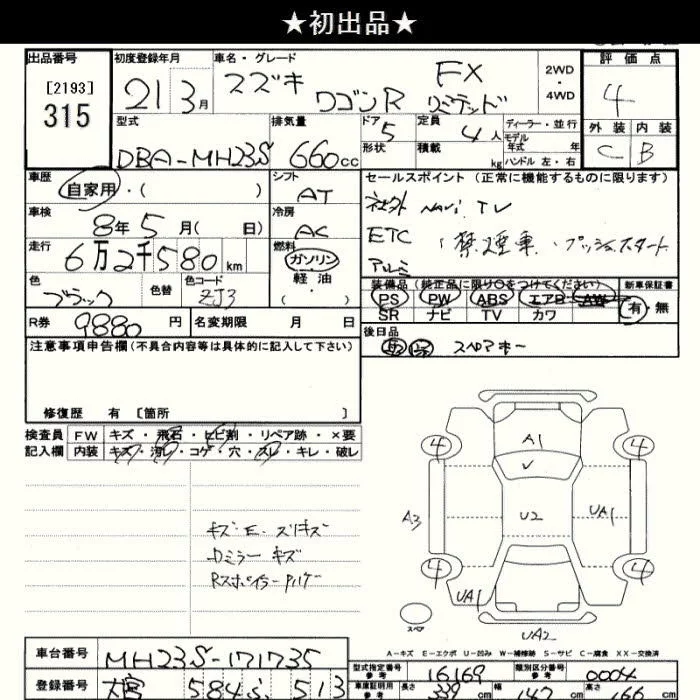 ★初出品★
出品番号
[2193]
315
初度登録年月
21 3月
車名・グレード
スズキ
ワゴンR
FX
リミテッド
2WD
・
4WD
評価点
4
外装 内装
C B
型式
DBA-MH23S
排気量
660cc
ドア 5
形状
定員
4人
積載
kg
ディーラー・並行
モデル
年式 年
ハンドル 左・右
車歴
自家用・( )
シフト
AT
車検
8年5月( 日)
冷房
AC
走行
6万2千580km
燃料
ガソリン
軽油
・
( )
色
ブラック
色替
色コード
ZJ3
R券
9880円
名変期限 月 日
セールスポイント(正常に機能するものに限ります)
社外 NAVI TV
ETC ・禁煙車・プッシュスタート
アルミ
装備品(純正品に限り○をつけてください)
新車保証書
PS PW ABS エアB AW
SR ナビ TV カワ
有・無
後日品
スペアキー
注意事項申告欄(不具合内容等は具体的に記入して下さい)
修復歴 有〔箇所 〕
検査員
記入欄
FW キズ・飛石・ヒビ割・リペア跡・×要
内装 キズ・汚レ・コゲ・穴・スレ・キレ・破レ
キズ・E・スリキズ
Dミラーキズ
Rスポイラーハゲ
4 A1 4
A3 U2 UA1
4 4
UA1
スペア
UA2
A-キズ E-エクボ U-凹み W-補修跡 S-サビ C-腐食 XX-交換済
車台番号
MH23S-171735
登録番号
大宮 584 ふ 513
型式指定番号
参考
16169
類別区分番号
参考
0004
車庫証明用
参考
長さ 339cm
幅 147cm
高さ 166cm